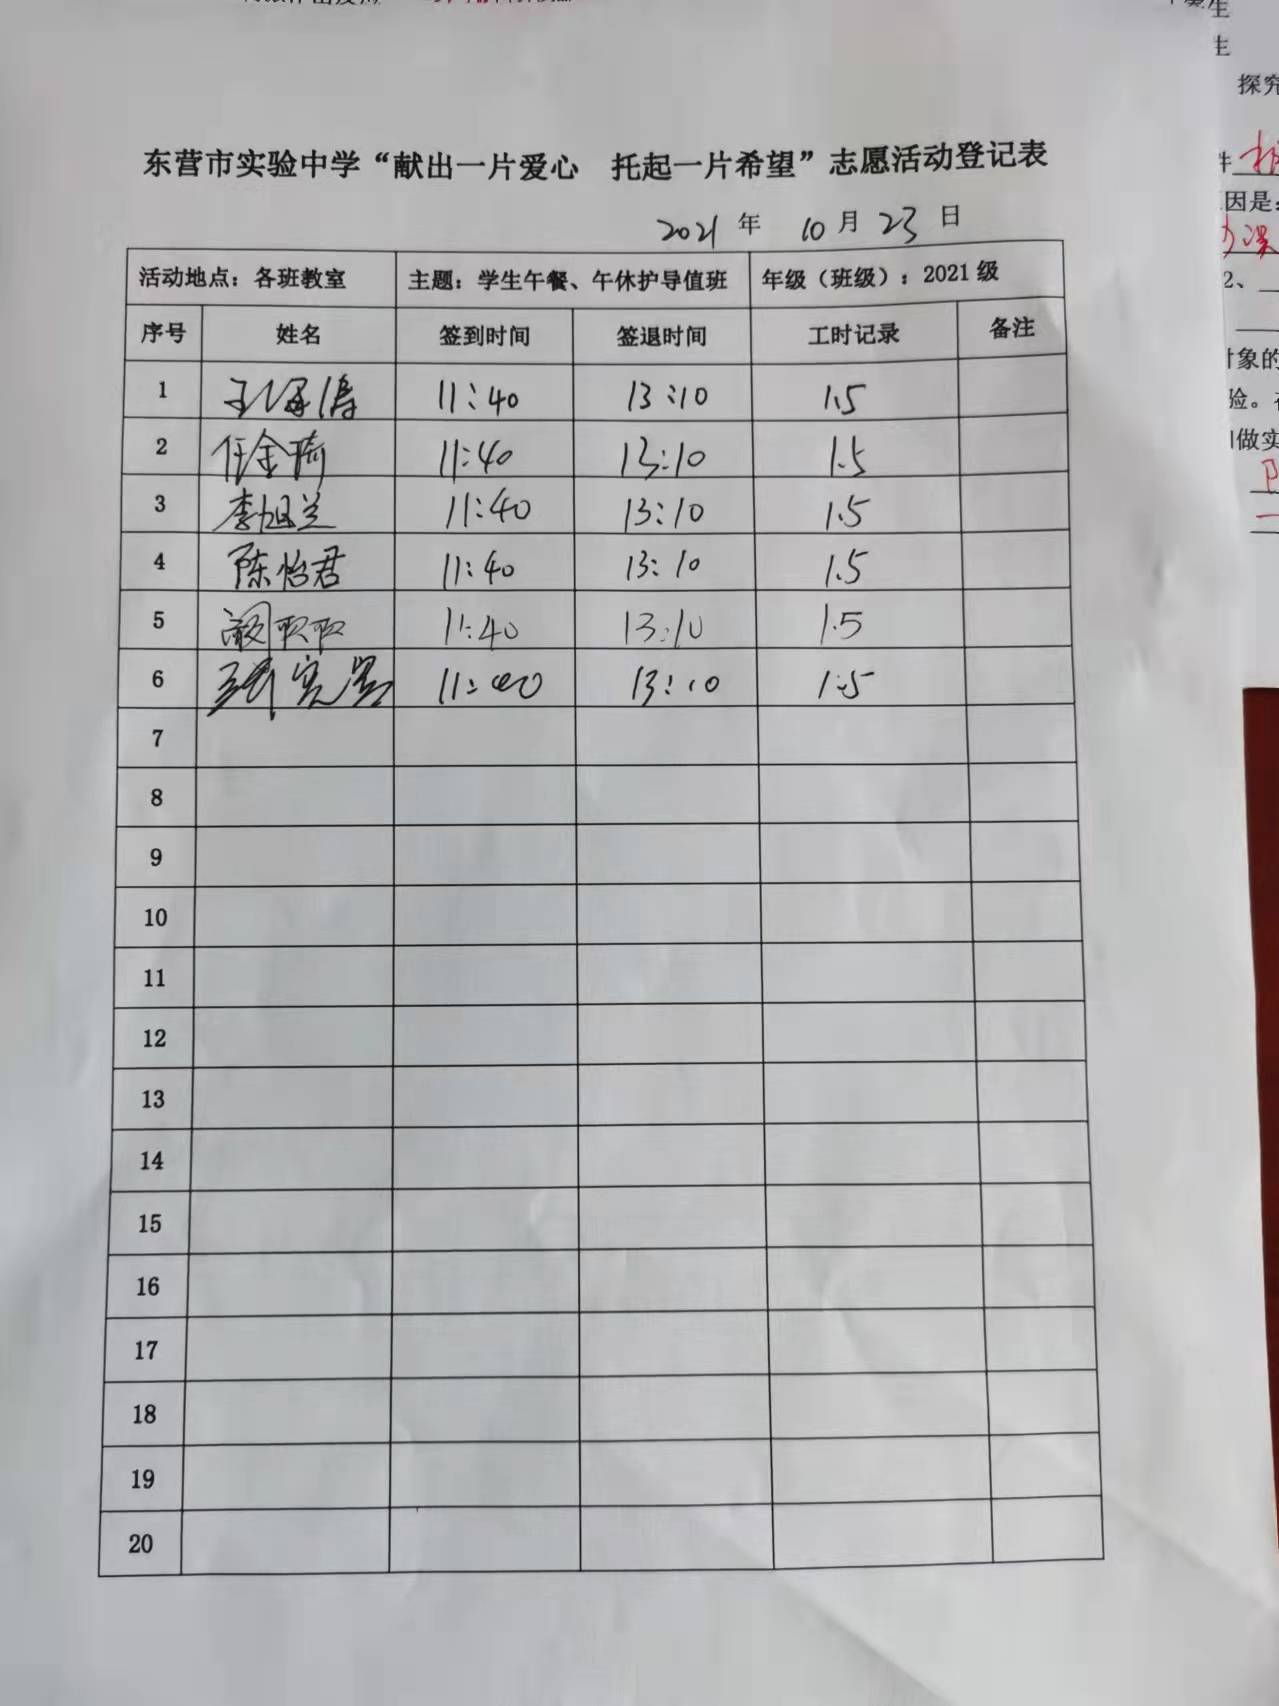 东营市实验中学“献出一片爱心 托起一片希望”志愿活动登记表
2021 年 10 月 23 日
活动地点：各班教室 主题：学生午餐、午休护导值班 年级（班级）：2021 级
序号 姓名 签到时间 签退时间 工时记录 备注
1 王海涛 11:40 13:10 1.5
2 任金琦 11:40 13:10 1.5
3 李旭兰 11:40 13:10 1.5
4 陈怡君 11:40 13:10 1.5
5 11:40 13:10 1.5
6 11:40 13:10 1.5
7
8
9
10
11
12
13
14
15
16
17
18
19
20
生
生
探究
件
因是：
2、
对象的
验。在
做实